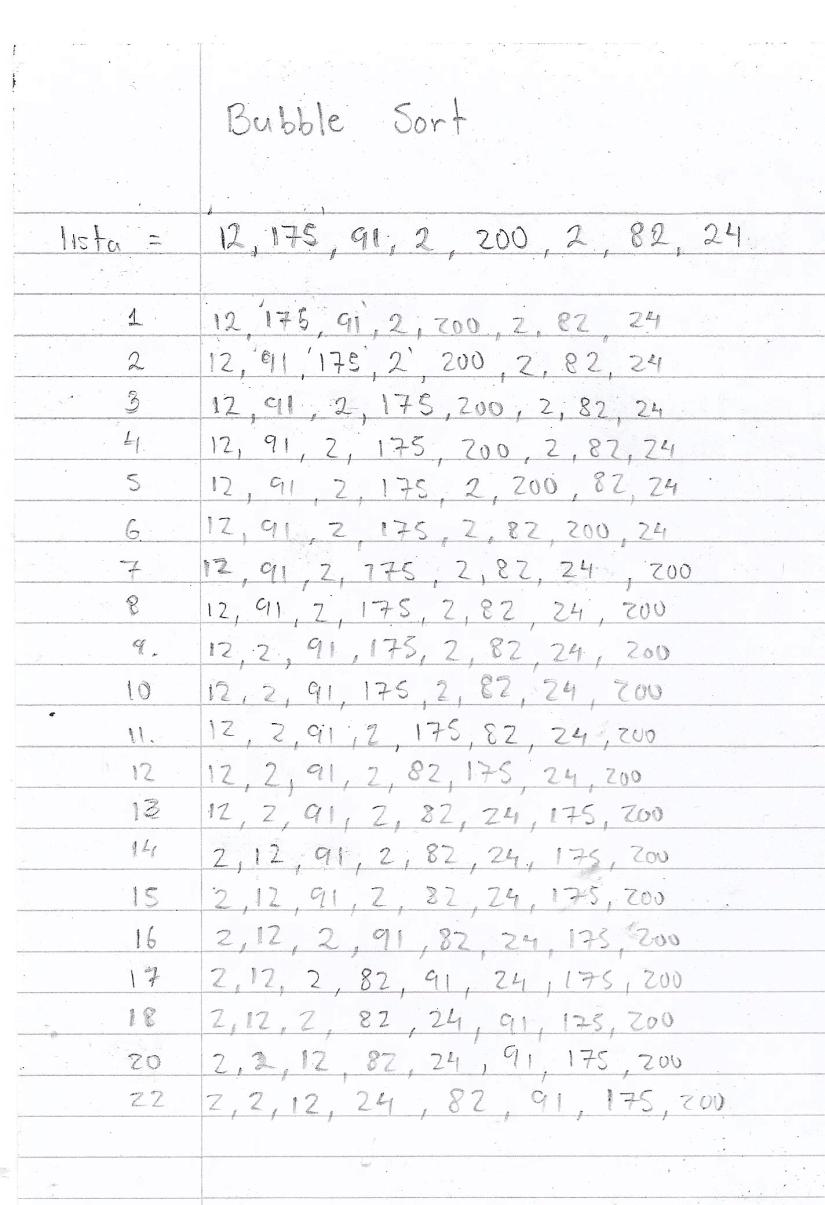 Bubble Sort
lista = 12, 175, 91, 2, 200, 2, 82, 24
1 12, 175, 91, 2, 200, 2, 82, 24
2 12, 91, 175, 2, 200, 2, 82, 24
3 12, 91, 2, 175, 200, 2, 82, 24
4 12, 91, 2, 175, 200, 2, 82, 24
5 12, 91, 2, 175, 2, 200, 82, 24
6 12, 91, 2, 175, 2, 82, 200, 24
7 12, 91, 2, 175, 2, 82, 24, 200
8 12, 91, 2, 175, 2, 82, 24, 200
9. 12, 2, 91, 175, 2, 82, 24, 200
10 12, 2, 91, 175, 2, 82, 24, 200
11. 12, 2, 91, 2, 175, 82, 24, 200
12 12, 2, 91, 2, 82, 175, 24, 200
13 12, 2, 91, 2, 82, 24, 175, 200
14 2, 12, 91, 2, 82, 24, 175, 200
15 2, 12, 91, 2, 82, 24, 175, 200
16 2, 12, 2, 91, 82, 24, 175, 200
17 2, 12, 2, 82, 91, 24, 175, 200
18 2, 12, 2, 82, 24, 91, 175, 200
20 2, 2, 12, 82, 24, 91, 175, 200
22 2, 2, 12, 24, 82, 91, 175, 200